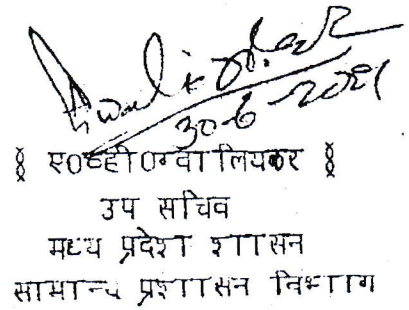 30-6-2021
§ ए०व्ही०ग्वालियकर §
उप सचिव
मध्य प्रदेश शासन
सामान्य प्रशासन विभाग